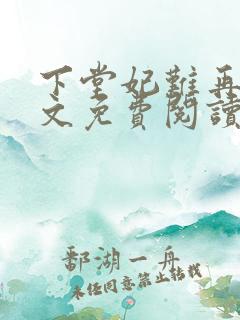 下堂妃難再
文免費閱讀
鄱湖一舟
未经同意禁止转载